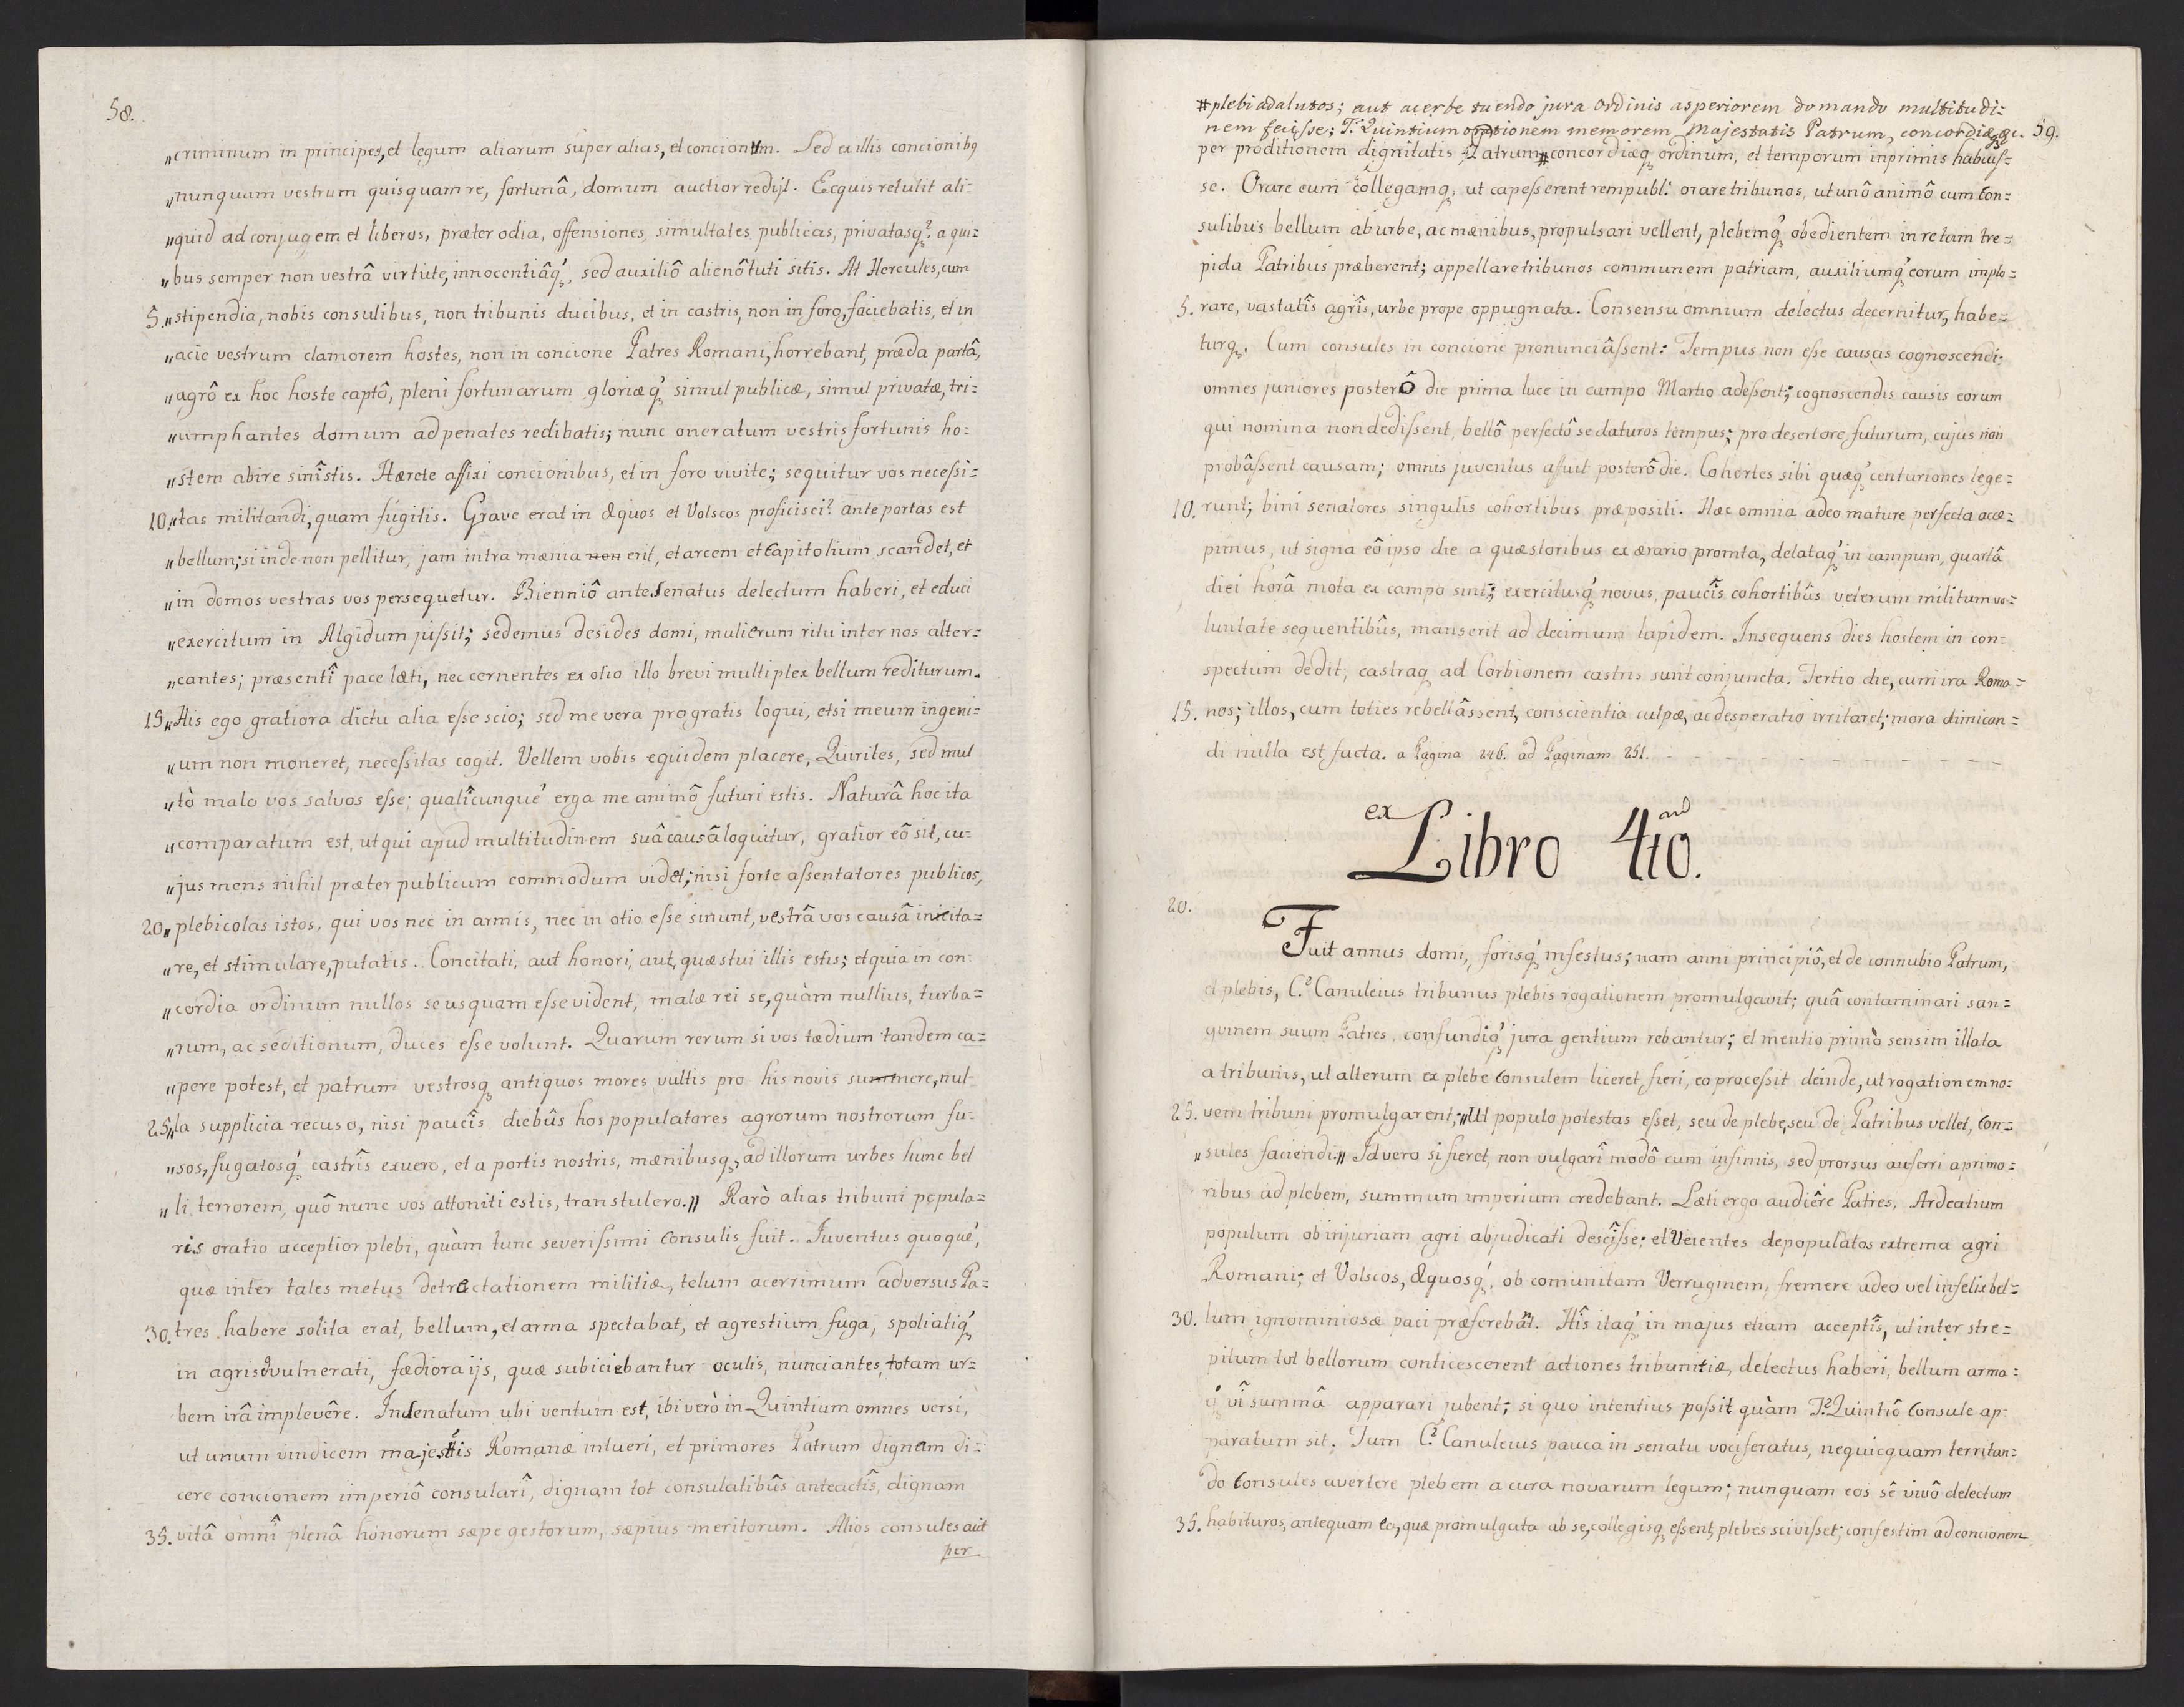 58.
„criminum in principes, et legum aliarum super alias, et concionum. Sed ex illis concionibꝯ
„nunquam vestrum quisquam re, fortunâ, domum auctior redijt. Ecquis retulit ali=
„quid ad conjugem et liberos, præter odia, offensiones, simultates publicas, privatasq́ꝫ? a qui=
„bus semper non vestrâ virtute, innocentiâq́ꝫ, sed auxiliô alienô tuti sitis. At Hercules, cum
5. „stipendia, nobis consulibus, non tribunis ducibus, et in castris, non in foro, faciebatis, et in
„acie vestrum clamorem hostes, non in concione Patres Romani, horrebant, præda partâ,
„agrô ex hoc hoste captô, pleni fortunarum gloriæq́ꝫ simul publicæ, simul privatæ, tri=
„umphantes domum ad penates redibatis; nunc oneratum vestris fortunis ho=
„stem abire sinîstis. Hærete affixi concionibus, et in foro vivite; sequitur vos necessi=
10. „tas militandi, quam fugitis. Grave erat in Æquos et Volscos proficisci? ante portas est
„bellum; si inde non pellitur, jam intra mænia non erit, et arcem et Capitolium scandet, et
„in domos vestras vos persequetur. Bienniô ante Senatus delectum haberi, et educi
„exercitum in Algidum jussit; sedemus desides domi, mulierum ritu inter nos alter=
„cantes; præsentî pace læti, nec cernentes ex otio illo brevi multiplex bellum rediturum.
15. „His ego gratiora dictu alia esse scio; sed me vera pro gratis loqui, etsi meum ingeni=
„um non moneret, necessitas cogit. Vellem vobis equidem placere, Quirites, sed mul
„tò malo vos salvos esse; qualîcunque erga me animô futuri estis. Naturâ hoc ita
„comparatum est, ut qui apud multitudinem suâ causâ loquitur, gratior eô sit, cu=
„jus mens nihil præter publicum commodum videt; nisi forte assentatores publicos,
20. „plebicolas istos, qui vos nec in armis, nec in otio esse sinunt, vestrâ vos causâ incita=
„re, et stimulare, putatis. Concitati, aut honori, aut quæstui illis estis; et quia in con=
„cordia ordinum nullos se usquam esse vident, malæ rei se, quàm nullius, turba=
„rum, ac seditionum, duces esse volunt. Quarum rerum si vos tædium tandem ca=
„pere potest, et patrum vestrosqꝫ antiquos mores vultis pro his novis summere, nul
25. „la supplicia recuso, nisi paucîs diebûs hos populatores agrorum nostrorum fu=
„sos, fugatosq́ꝫ castrîs exuero, et a portis nostris, mænibusqꝫ, ad illorum urbes hunc bel
„li terrorem, quô nunc vos attoniti estis, transtulero.„ Rarò alias tribuni popula=
ris oratio acceptior plebi, quàm tunc severissimi Consulis fuit. Juventus quoqué,
quæ inter tales metus detrectationem militiæ, telum acerrimum adversus Pa=
30. tres habere solita erat, bellum, et arma spectabat, et agrestium fuga, spoliatiq́ꝫ
in agris vulnerati, fædiora ijs, quæ subiciebantur oculis, nunciantes, totam ur=
bem irâ implevêre. In Senatum ubi ventum est, ibi verò in Quintium omnes versi,
ut unum vindicem majestatis Romanæ intueri, et primores Patrum dignam di=
cere concionem imperiô consularî, dignam tot consulatibûs anteactîs, dignam
35. vitâ omnî plenâ honorum sæpe gestorum, sæpius meritorum. Alios consules aut
per
# plebi adalutos; aut acerbe tuendo jura Ordinis asperiorem domando multitudi=
nem fecisse; T. Quintium orationem memorem Majestatis Patrum, concordiæqꝫ &c. 59.
per proditionem dignitatis Patrum # concordiæqꝫ ordinum, et temporum inprimis habuis=
se. Orare eum collegamqꝫ, ut capesserent rempubl: orare tribunos, ut unô animô cum Con=
sulibus bellum ab urbe, ac mænibus, propulsari vellent, plebemq́ꝫ obedientem in re tam tre=
pida Patribus præberent; appellare tribunos communem patriam, auxiliumq́ꝫ eorum implo=
5. rare, vastatîs agrîs, urbe prope oppugnata. Consensu omnium delectus decernitur, habe=
turqꝫ. Cum consules in concione pronunciâssent: Tempus non esse causas cognoscendi:
omnes juniores posterô die prima luce in campo Martio adessent; cognoscendis causis eorum
qui nomina non dedissent, bellô perfectô se daturos tempus; pro desertore futurum, cujus non
probâssent causam; omnis juventus affuit posterô die. Cohortes sibi quæq́ꝫ centuriones lege=
10. runt; bini senatores singulis cohortibus præpositi. Hæc omnia adeo mature perfecta acce=
pimus, ut signa eô ipso die a quæstoribus ex ærario promta, delataq́ꝫ in campum, quartâ
diei horâ mota ex campo sint; exercitusq́ꝫ novus, paucîs cohortibûs veterum militum vo=
luntate sequentibûs, manserit ad decimum lapidem. Insequens dies hostem in con=
spectum dedit, castraqꝫ ad Corbionem castris sunt conjuncta. Tertio die, cum ira Roma=
15. nos; illos, cum toties rebellâssent, conscientia culpæ, ac desperatio irritaret; mora dimican=
di nulla est facta. a Pagina 246. ad Paginam 251.
ex Libro 4to.
20.
Fuit annus domi, forisq́ꝫ infestus; nam anni principiô, et de connubio Patrum,
et plebis, C. Canuleius tribunus plebis rogationem promulgavit; quâ contaminari san=
guinem suum Patres, confundiq́ꝫ jura gentium rebantur; et mentio primò sensim illata
a tribunis, ut alterum ex plebe Consulem liceret fieri, eo processit deinde, ut rogationem no=
25. vem tribuni promulgarent; „Ut populo potestas esset, seu de plebe, seu de Patribus vellet, Con=
„sules faciendi.„ Id vero si fieret, non vulgarî modô cum infimis, sed prorsus auferri a primo=
ribus ad plebem, summum imperium credebant. Læti ergo audiêre Patres, Ardeatium
populum ob injuriam agri abjudicati descîsse; et Veientes depopulatos extrema agri
Romani; et Volscos, Æquosq́ꝫ, ob comunitam Verruginem, fremere adeo vel infelix bel=
30. lum ignominiosæ paci præferebant. Hîs itaq́ꝫ in majus etiam acceptîs, ut inter stre=
pitum tot bellorum conticescerent actiones tribunitiæ, delectus haberi, bellum arma=
q́ꝫ vî summâ apparari jubent; si quo intentius possit quàm T. Quintiô Consule ap=
paratum sit. Tum C. Canuleius pauca in senatu vociferatus, nequicquam territan=
do Consules avertere plebem a cura novarum legum; nunquam eos sê vivô delectum
35. habituros, antequam ea, quæ promulgata ab se, collegisqꝫ essent, plebes scivisset; confestim ad concionem